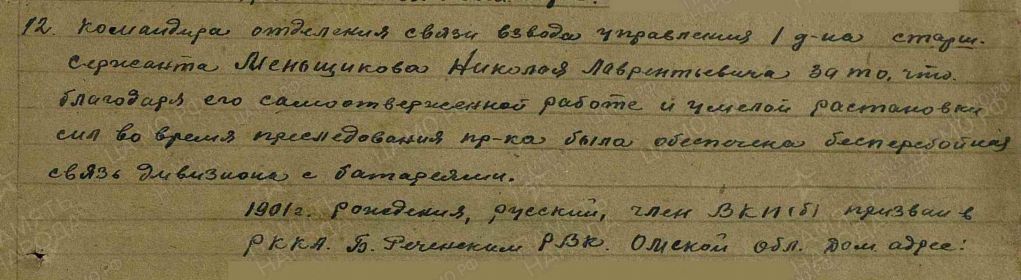 12. командира отделения связи взвода управления 1 д-на старш.
сержанта Меньщикова Николая Лаврентьевича за то, что
благодаря его самоотверженной работе и умелой растановки
сил во время преследования пр-ка была обеспечена бесперебойная
связь дивизиона с батареями.
1901г. рождения, русский, член ВКП(б) призван в
РККА. Б. Реченским РВК. Омской обл. Дом. адрес: